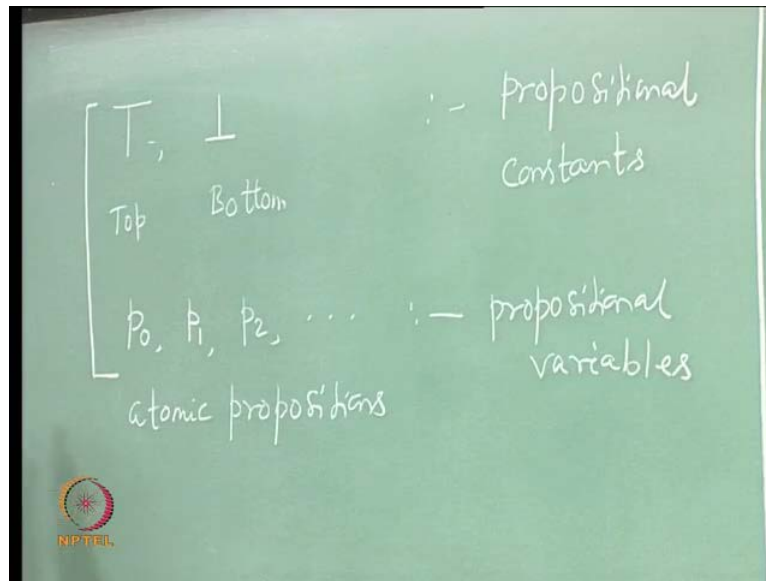 ⊤, ⊥ :- propositional
constants
Top Bottom
p₀, p₁, p₂, ... :— propositional
variables
atomic propositions
NPTEL